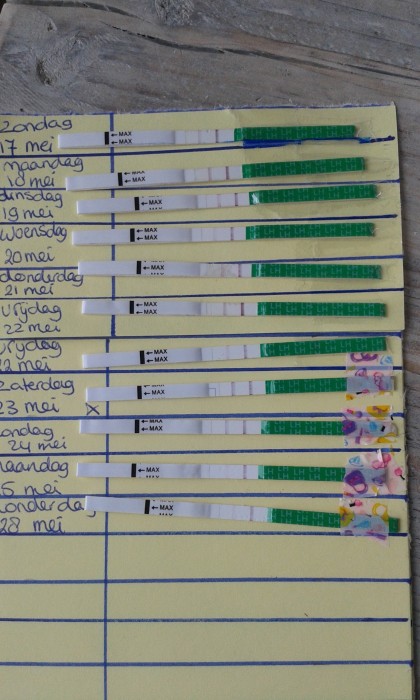 Zondag
17 mei
← MAX
← MAX
maandag
18 mei
← MAX
← MAX
dinsdag
19 mei
← MAX
woensdag
20 mei
← MAX
← MAX
donderdag
21 mei
← MAX
← MAX
vrijdag
22 mei
← MAX
← MAX
vrijdag
22 mei
← MAX
← MAX
zaterdag
23 mei
← MAX
← MAX
X
zondag
24 mei
← MAX
← MAX
maandag
25 mei
← MAX
← MAX
donderdag
28 mei
← MAX